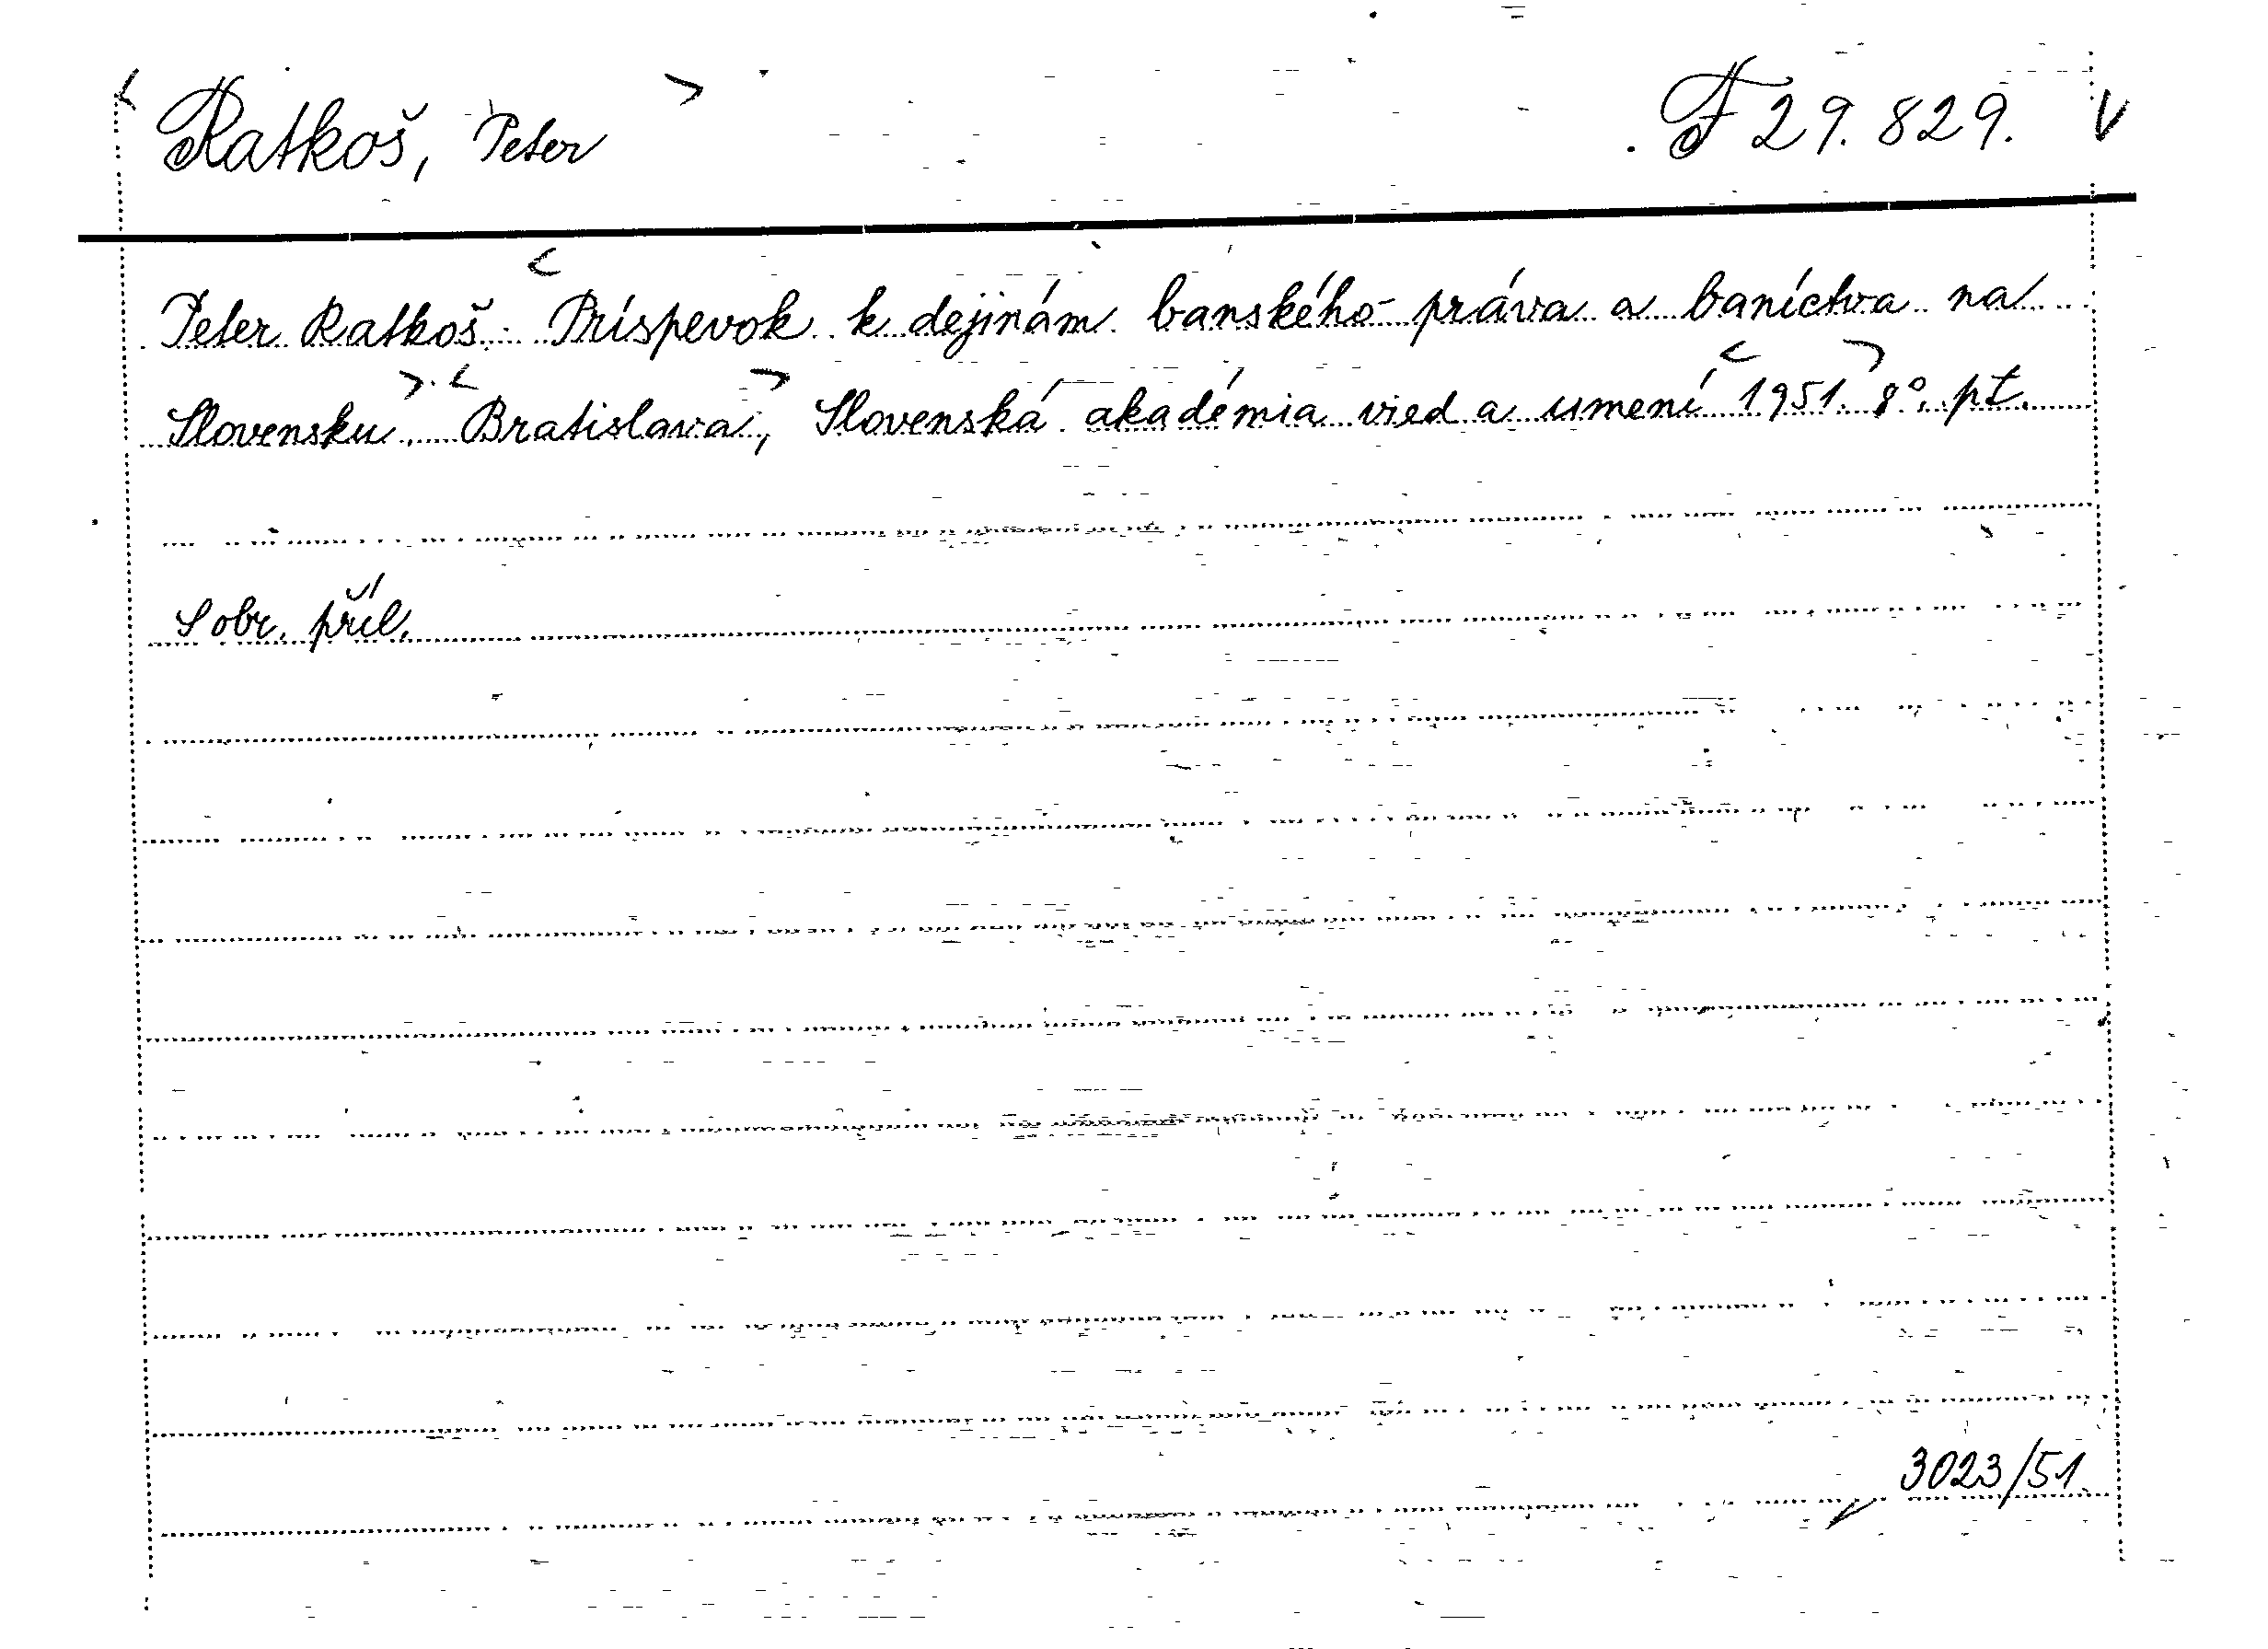 < Ratkoš, Peter > F 29.829. V
Peter Ratkoš: < Príspevok k dejinám banského práva a baníctva na
Slovensku >. < Bratislava >, Slovenská akadémia vied a umení < 1951. > 8°. pt.
S obr. příl.
3023/51